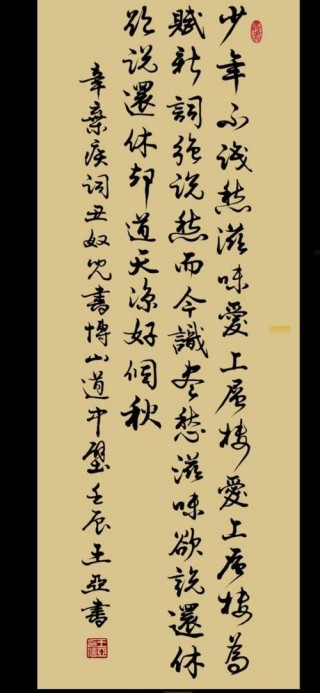 少年不識愁滋味愛上層樓愛上層樓為
賦新詞強說愁而今識盡愁滋味欲說還休
欲說還休卻道天涼好個秋
辛棄疾詞丑奴兒書博山道中壁壬辰王亞書